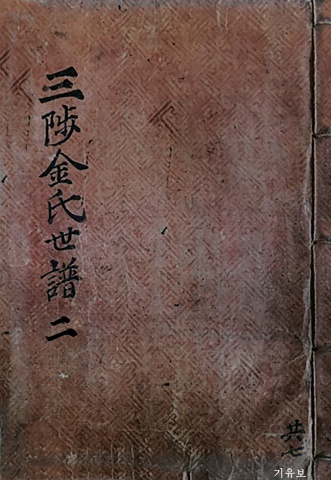 三陟金氏世譜 二
共七
기유보